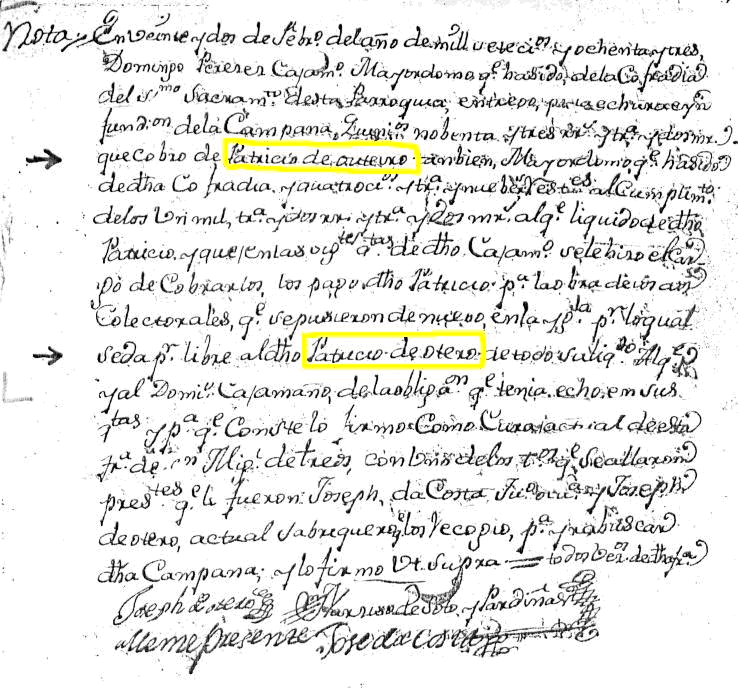 Nota, En veinte y dos de febro. del año de mill setecios. y ochenta y tres,
Domingo Caamo. Mayordomo qe. ha sido, de la Cofradia
del smo Sacramto. desta Parroquia, entrego, pa.
fundion de la Campana, nobenta y tres rrs. y tra. y dos mr.
que cobro de Patricio de outeiro tanbien, Mayordomo, qe. ha sido
de dha Cofradia. y quatrocios. y tra. y nuebe restes. al Cumplimto.
de los Un mil, tra. y dos rrs. y tra. y dos mrs. al qe. liquido de dho
Patricio. y que en las qtas. de dho Caamo. se le hizo el car-
go de Cobrarlos, los pago dho Patricio. pa. la obra de los
Colectorales, qe. se pusieron de nuebo, en la ygla. pr. lo qual
se da pr. libre al dho Patricio de otero de todo su
y al Domo. Caamaño, de la obligaon. qe. tenia echo, en sus
qtas y pa. qe. Conste lo firmo Como Cura actual de esta
fra. de Sn Migl. de treos, con los tos. qe. se allaron
prestes qe. lo fueron Joseph, da Costa, y Joseph
de otero, actual fabriquero, los recogio, pa.
dha Campana; y lo firmo Ut. supra = todos de dha fra.
Joseph de otero Narciso de Soto, y Pardiñas
Me me presente Jose da costa